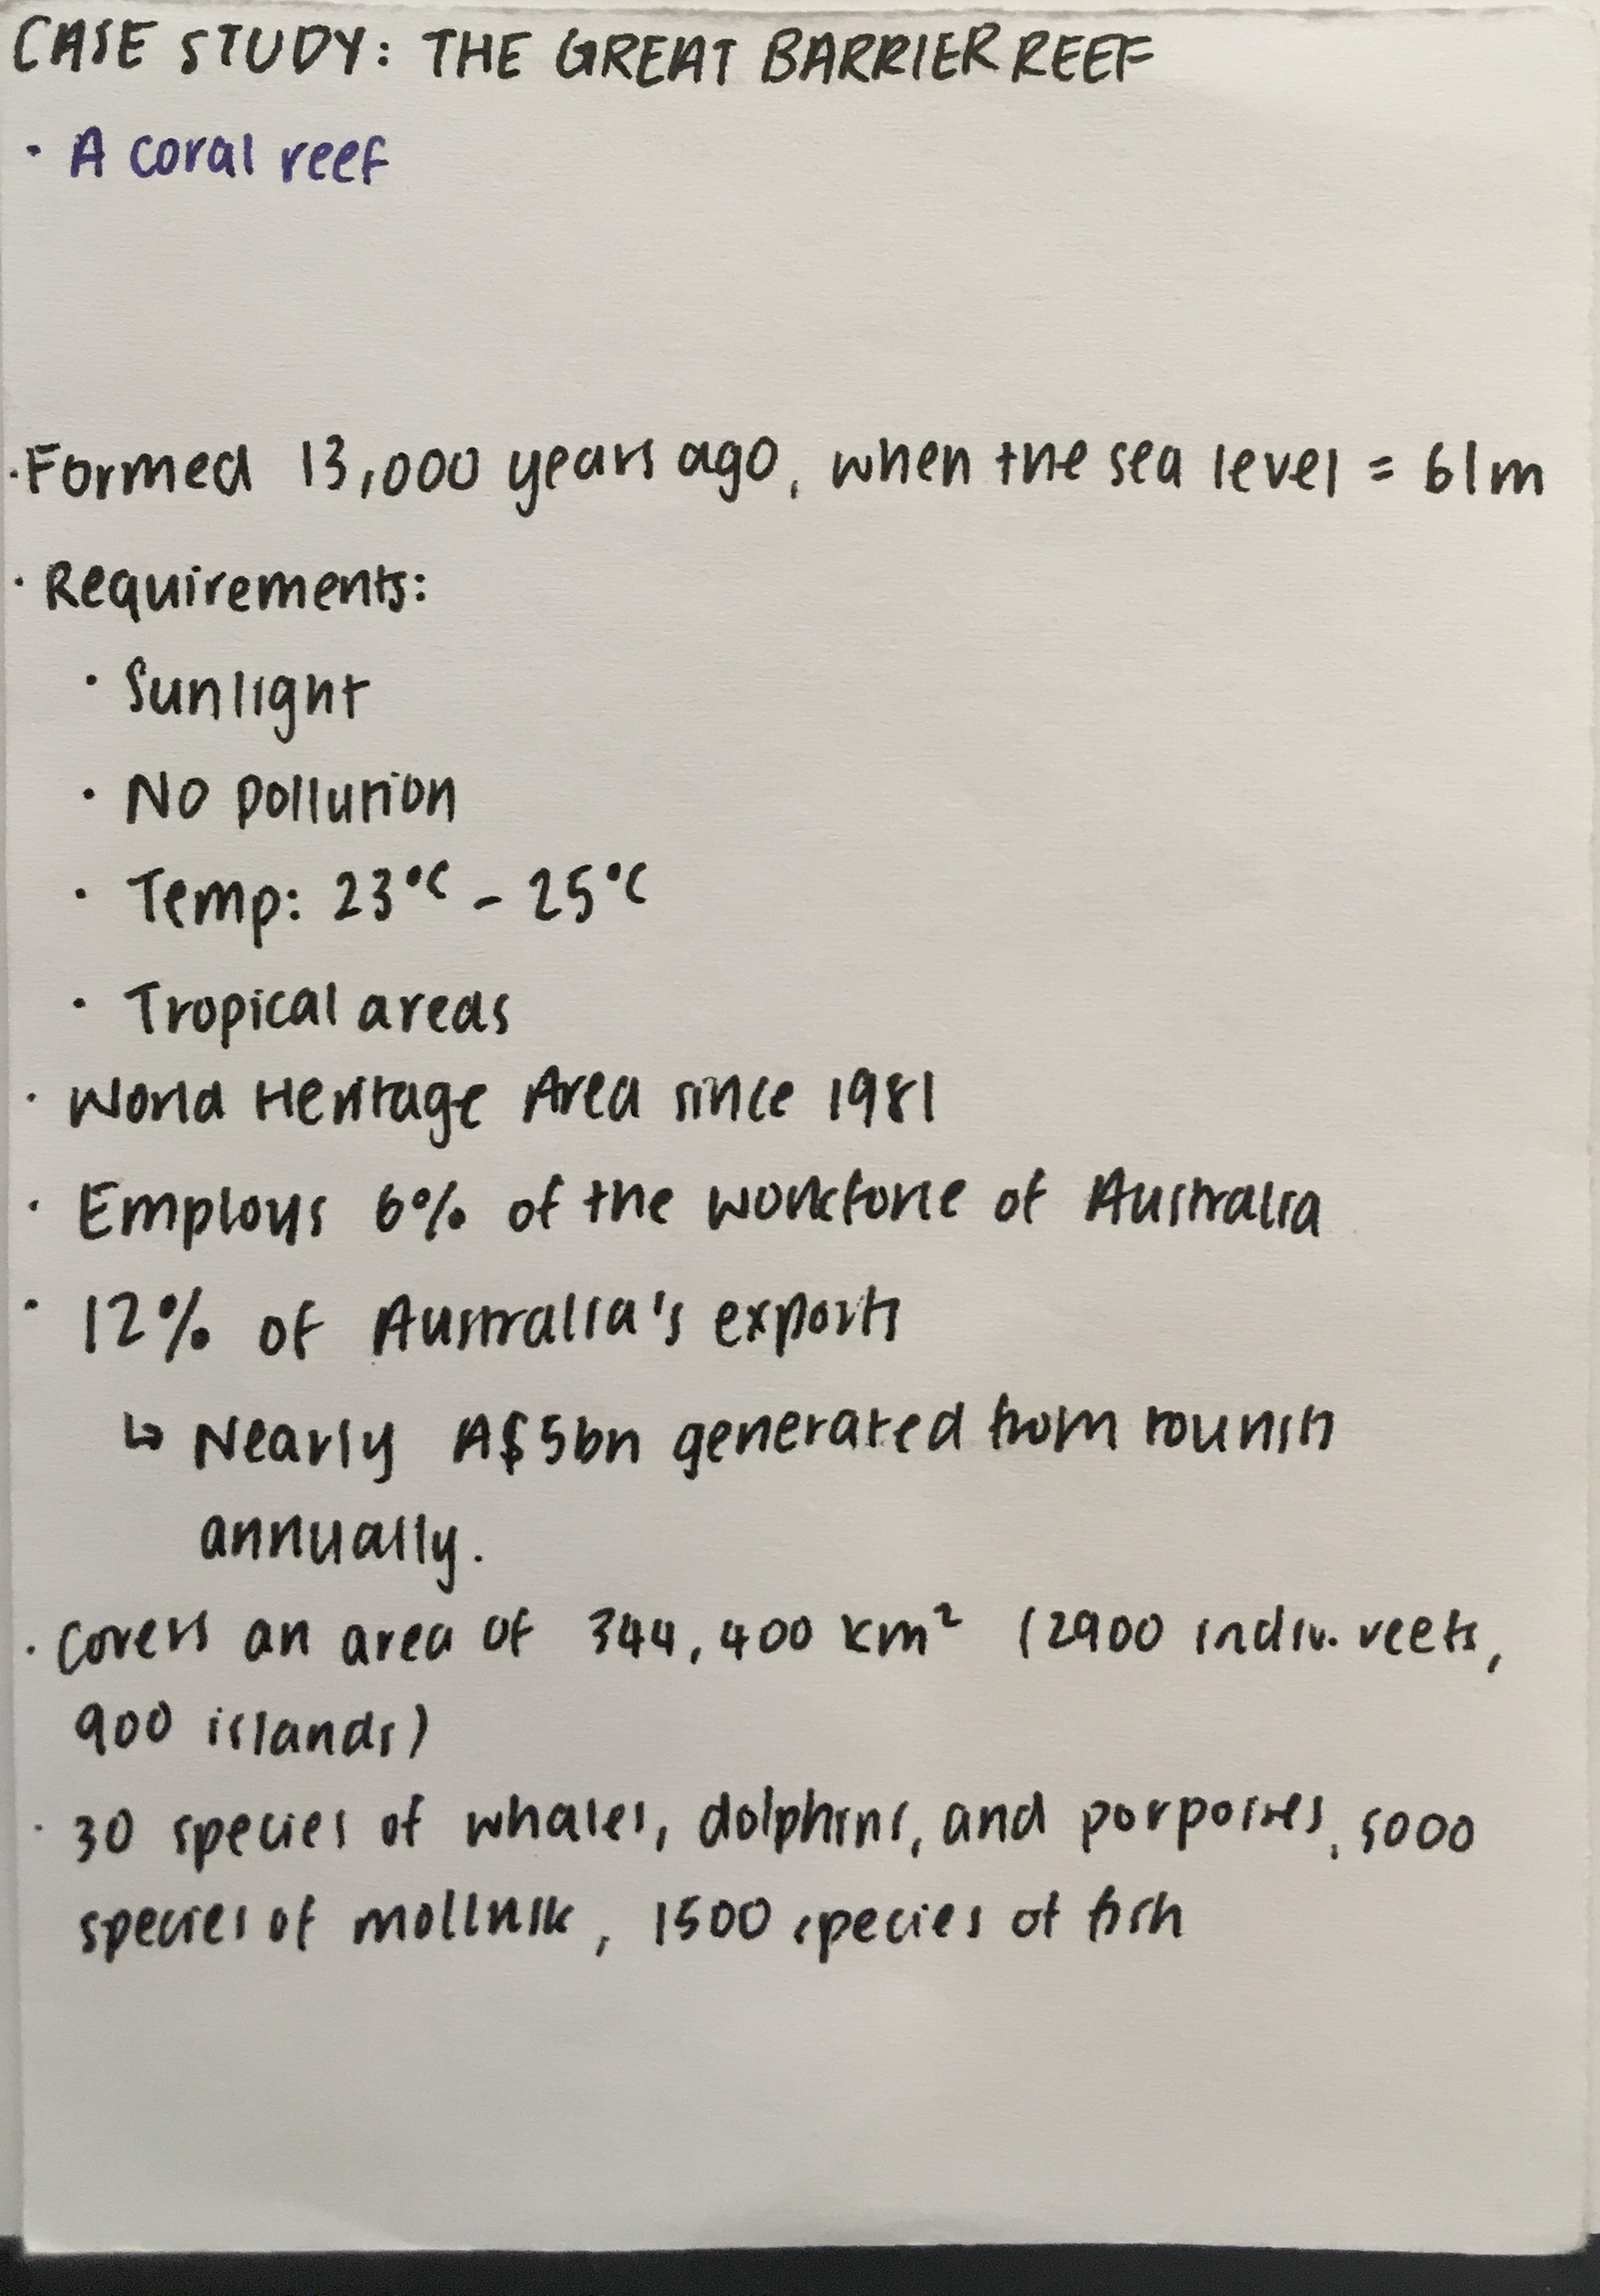 CASE STUDY: THE GREAT BARRIER REEF
· A coral reef
· Formed 13,000 years ago, when the sea level = 61m
· Requirements:
· Sunlight
· No pollution
· Temp: 23°C - 25°C
· Tropical areas
· World Heritage Area since 1981
· Employs 6% of the workforce of Australia
· 12% of Australia's exports
↳ Nearly A$5bn generated from tourists
annually.
· Covers an area of 344,400 km² (2900 indiv. reefs,
900 islands)
· 30 species of whales, dolphins, and porpoises, 5000
species of mollusk, 1500 species of fish